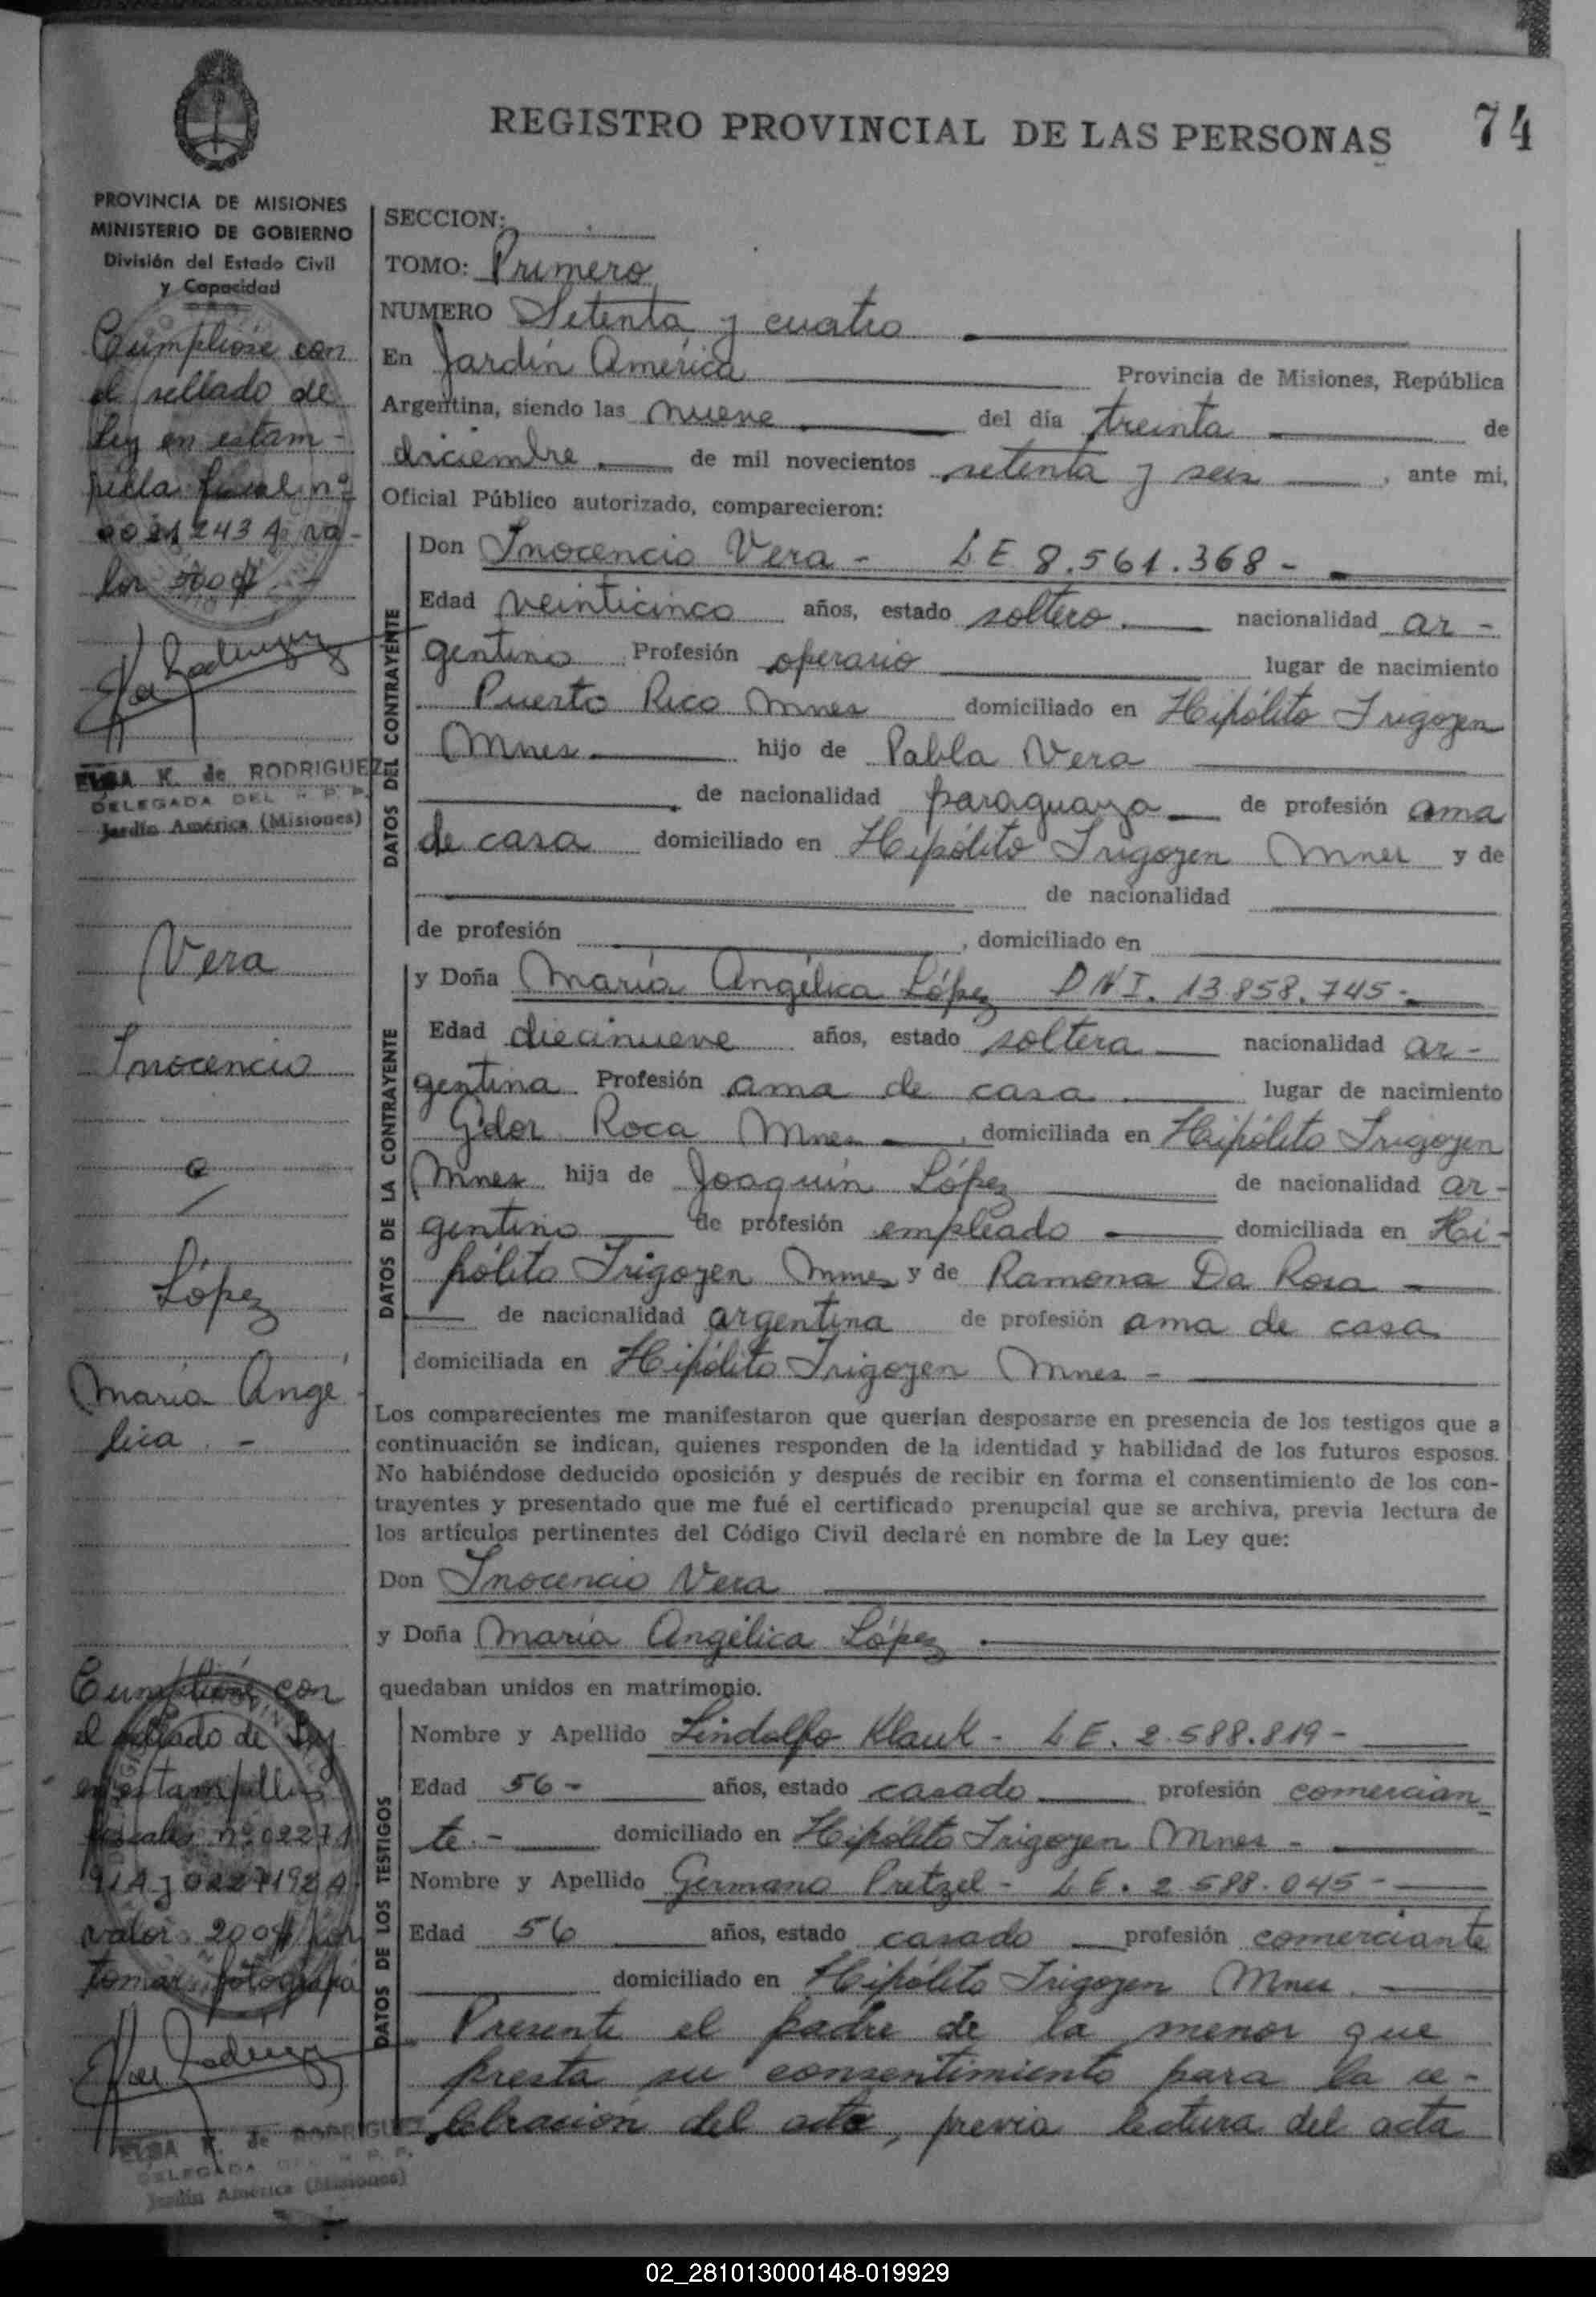 REGISTRO PROVINCIAL DE LAS PERSONAS
74
PROVINCIA DE MISIONES
MINISTERIO DE GOBIERNO
División del Estado Civil
y Capacidad
Cumplióse con
el sellado de
ley en estam-
pilla fiscal nº
va-
lor
ELBA K. de RODRIGUEZ
DELEGADA DEL R. P. P.
Jardín América (Misiones)
Vera
Inocencio
c/
López
María Angé
lica. -
Cumplióse con
el sellado de Ley
en estampillas
fiscales nº
valor 200$ por
tomar fotografía
ELBA K. de RODRIGUEZ
DELEGADA DEL R. P. P.
Jardín América (Misiones)
SECCION:
TOMO: Primero
NUMERO Setenta y cuatro
En Jardín América Provincia de Misiones, República
Argentina, siendo las nueve del día treinta de
diciembre de mil novecientos setenta y seis, ante mi,
Oficial Público autorizado, comparecieron:
DATOS DEL CONTRAYENTE
Don Inocencio Vera - L E 8.561.368 -
Edad veinticinco años, estado soltero nacionalidad ar-
gentino Profesión operario lugar de nacimiento
Puerto Rico Mnes domiciliado en Hipólito Irigoyen
Mnes hijo de Pabla Vera
de nacionalidad paraguaya de profesión ama
de casa domiciliado en Hipólito Irigoyen Mnes y de
de nacionalidad
de profesión , domiciliado en
DATOS DE LA CONTRAYENTE
y Doña María Angélica López D N I. 13.858.745 -
Edad diecinueve años, estado soltera nacionalidad ar-
gentina Profesión ama de casa lugar de nacimiento
Gdor Roca Mnes, domiciliada en Hipólito Irigoyen
Mnes hija de Joaquín López de nacionalidad ar-
gentino de profesión empleado domiciliada en Hi-
pólito Irigoyen Mnes y de Ramona Da Rosa
de nacionalidad argentina de profesión ama de casa
domiciliada en Hipólito Irigoyen Mnes -
Los comparecientes me manifestaron que querían desposarse en presencia de los testigos que a
continuación se indican, quienes responden de la identidad y habilidad de los futuros esposos.
No habiéndose deducido oposición y después de recibir en forma el consentimiento de los con-
trayentes y presentado que me fué el certificado prenupcial que se archiva, previa lectura de
los artículos pertinentes del Código Civil declaré en nombre de la Ley que:
Don Inocencio Vera
y Doña María Angélica López
quedaban unidos en matrimonio.
DATOS DE LOS TESTIGOS
Nombre y Apellido Lindolfo Klauk - L E. 2.588.819 -
Edad 56 - años, estado casado profesión comercian
te. - domiciliado en Hipólito Irigoyen Mnes -
Nombre y Apellido Germano Pretzel - L E. 2.588.045 -
Edad 56 años, estado casado profesión comerciante
domiciliado en Hipólito Irigoyen Mnes.
Presente el padre de la menor que
presta su consentimiento para la ce-
lebración del acto, previa lectura del acta
02_281013000148-019929